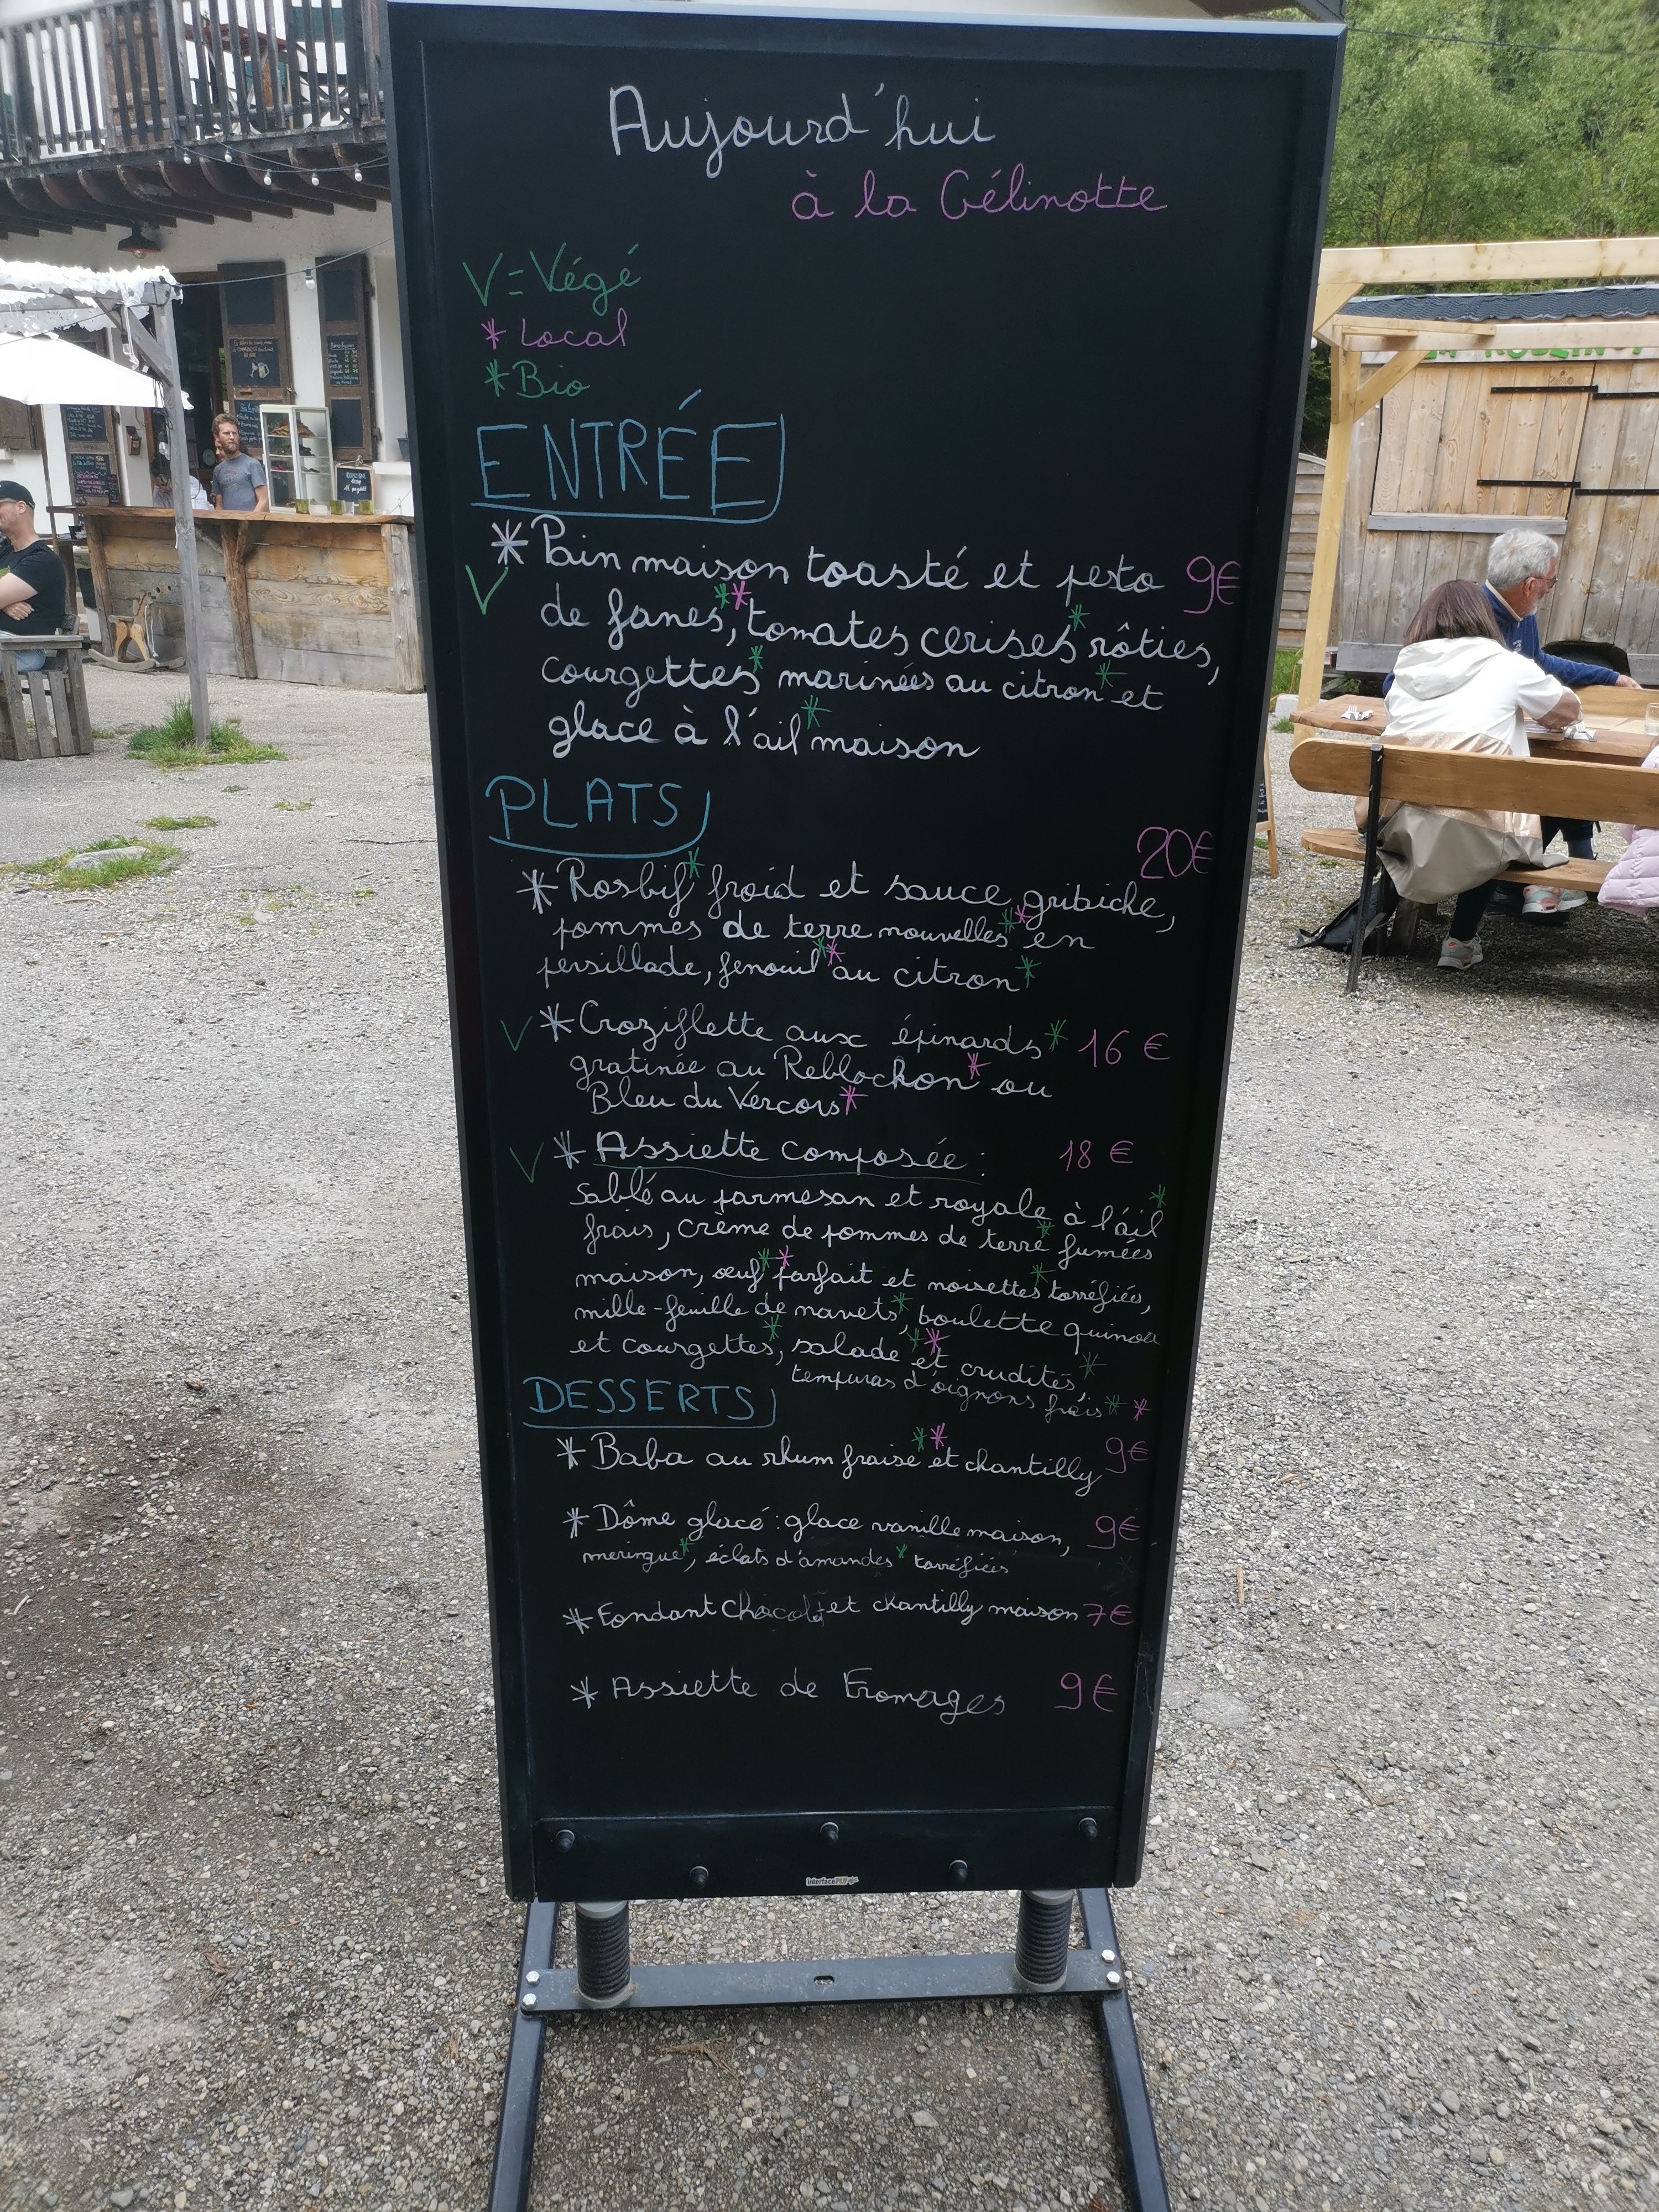 Aujourd'hui
à la Gélinotte
V = Végé
* Local
* Bio
ENTRÉE
* Pain maison toasté et pesto 9€
V de fanes**, tomates cerises* rôties,
courgettes* marinées au citron* et
glace à l'ail* maison
PLATS
20€
* Rosbif* froid et sauce gribiche,
pommes de terre nouvelles** en
persillade, fenouil** au citron*
V * Croziflette aux épinards* 16 €
gratinée au Reblochon* ou
Bleu du Vercors*
V * Assiette composée : 18 €
Sablé au parmesan et royale à l'ail*
frais, crème de pommes de terre* fumées
maison, œuf** parfait et noisettes* torréfiées,
mille-feuille de navets*, boulette quinoa
et courgettes*, salade** et crudités*,
tempuras d'oignons frais**
DESSERTS
* Baba au rhum fraise** et chantilly 9€
* Dôme glacé : glace vanille maison, 9€
meringue*, éclats d'amandes* torréfiées
* Fondant Chocolat et chantilly maison 7€
* Assiette de Fromages 9€